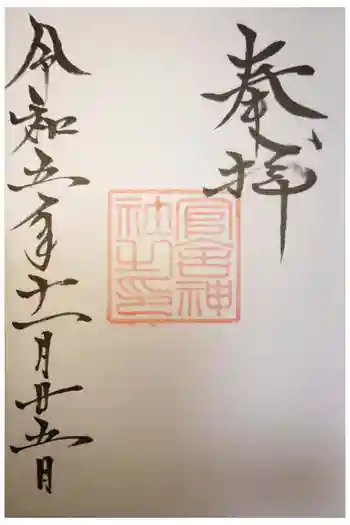 奉拝
官舎神
社之印
令和五年十一月廿五日